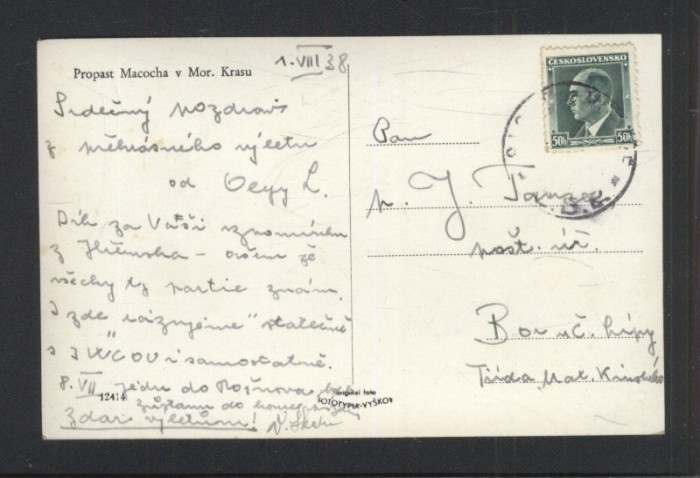 Propast Macocha v Mor. Krasu
1. VIII 38
Srdečný pozdrav
z překrásného výletu
od L.
Dík za Vaši vzpomínku
z Jičínska – ovšem že
všechny ty partie znám.
I zde „rázujeme" statečně
s YWCOU i samostatně.
8. VII jedu do Rožnova
12414
zůstanu do konce
Zdar výletům!
original foto
FOTOTYPIA-VYŠKOV
ČESKOSLOVENSKO
50h 50h
Pan
p. J.
pošt. úř.
Bor u č. Lípy
Třída Mat. Kinského